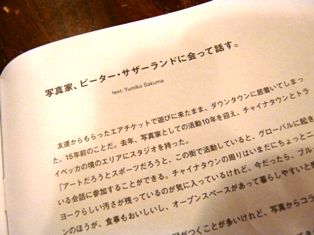 写真家、ピーター・サザーランドに会って話す。
text: Yumiko Sakuma
友達からもらったエアチケットで遊びに来たまま、ダウンタウンに居着いてしまっ
た。15年前のことだ。去年、写真家としての活動10年を迎え、チャイナタウンとトラ
イベッカの境のエリアにスタジオを持った。
「アートだろうとスポーツだろうと、この街で活動していると、グローバルに起き
いる会話に参加することができる。チャイナタウンの周りはいまだにちょっとニ
ヨークらしい汚さが残っているのが気に入っているけれど、今だったら、ブル
ンのほうが、食事もおいしいし、オープンスペースがあって暮らしやすいと
がつくことが多いけれど、写真からコラ